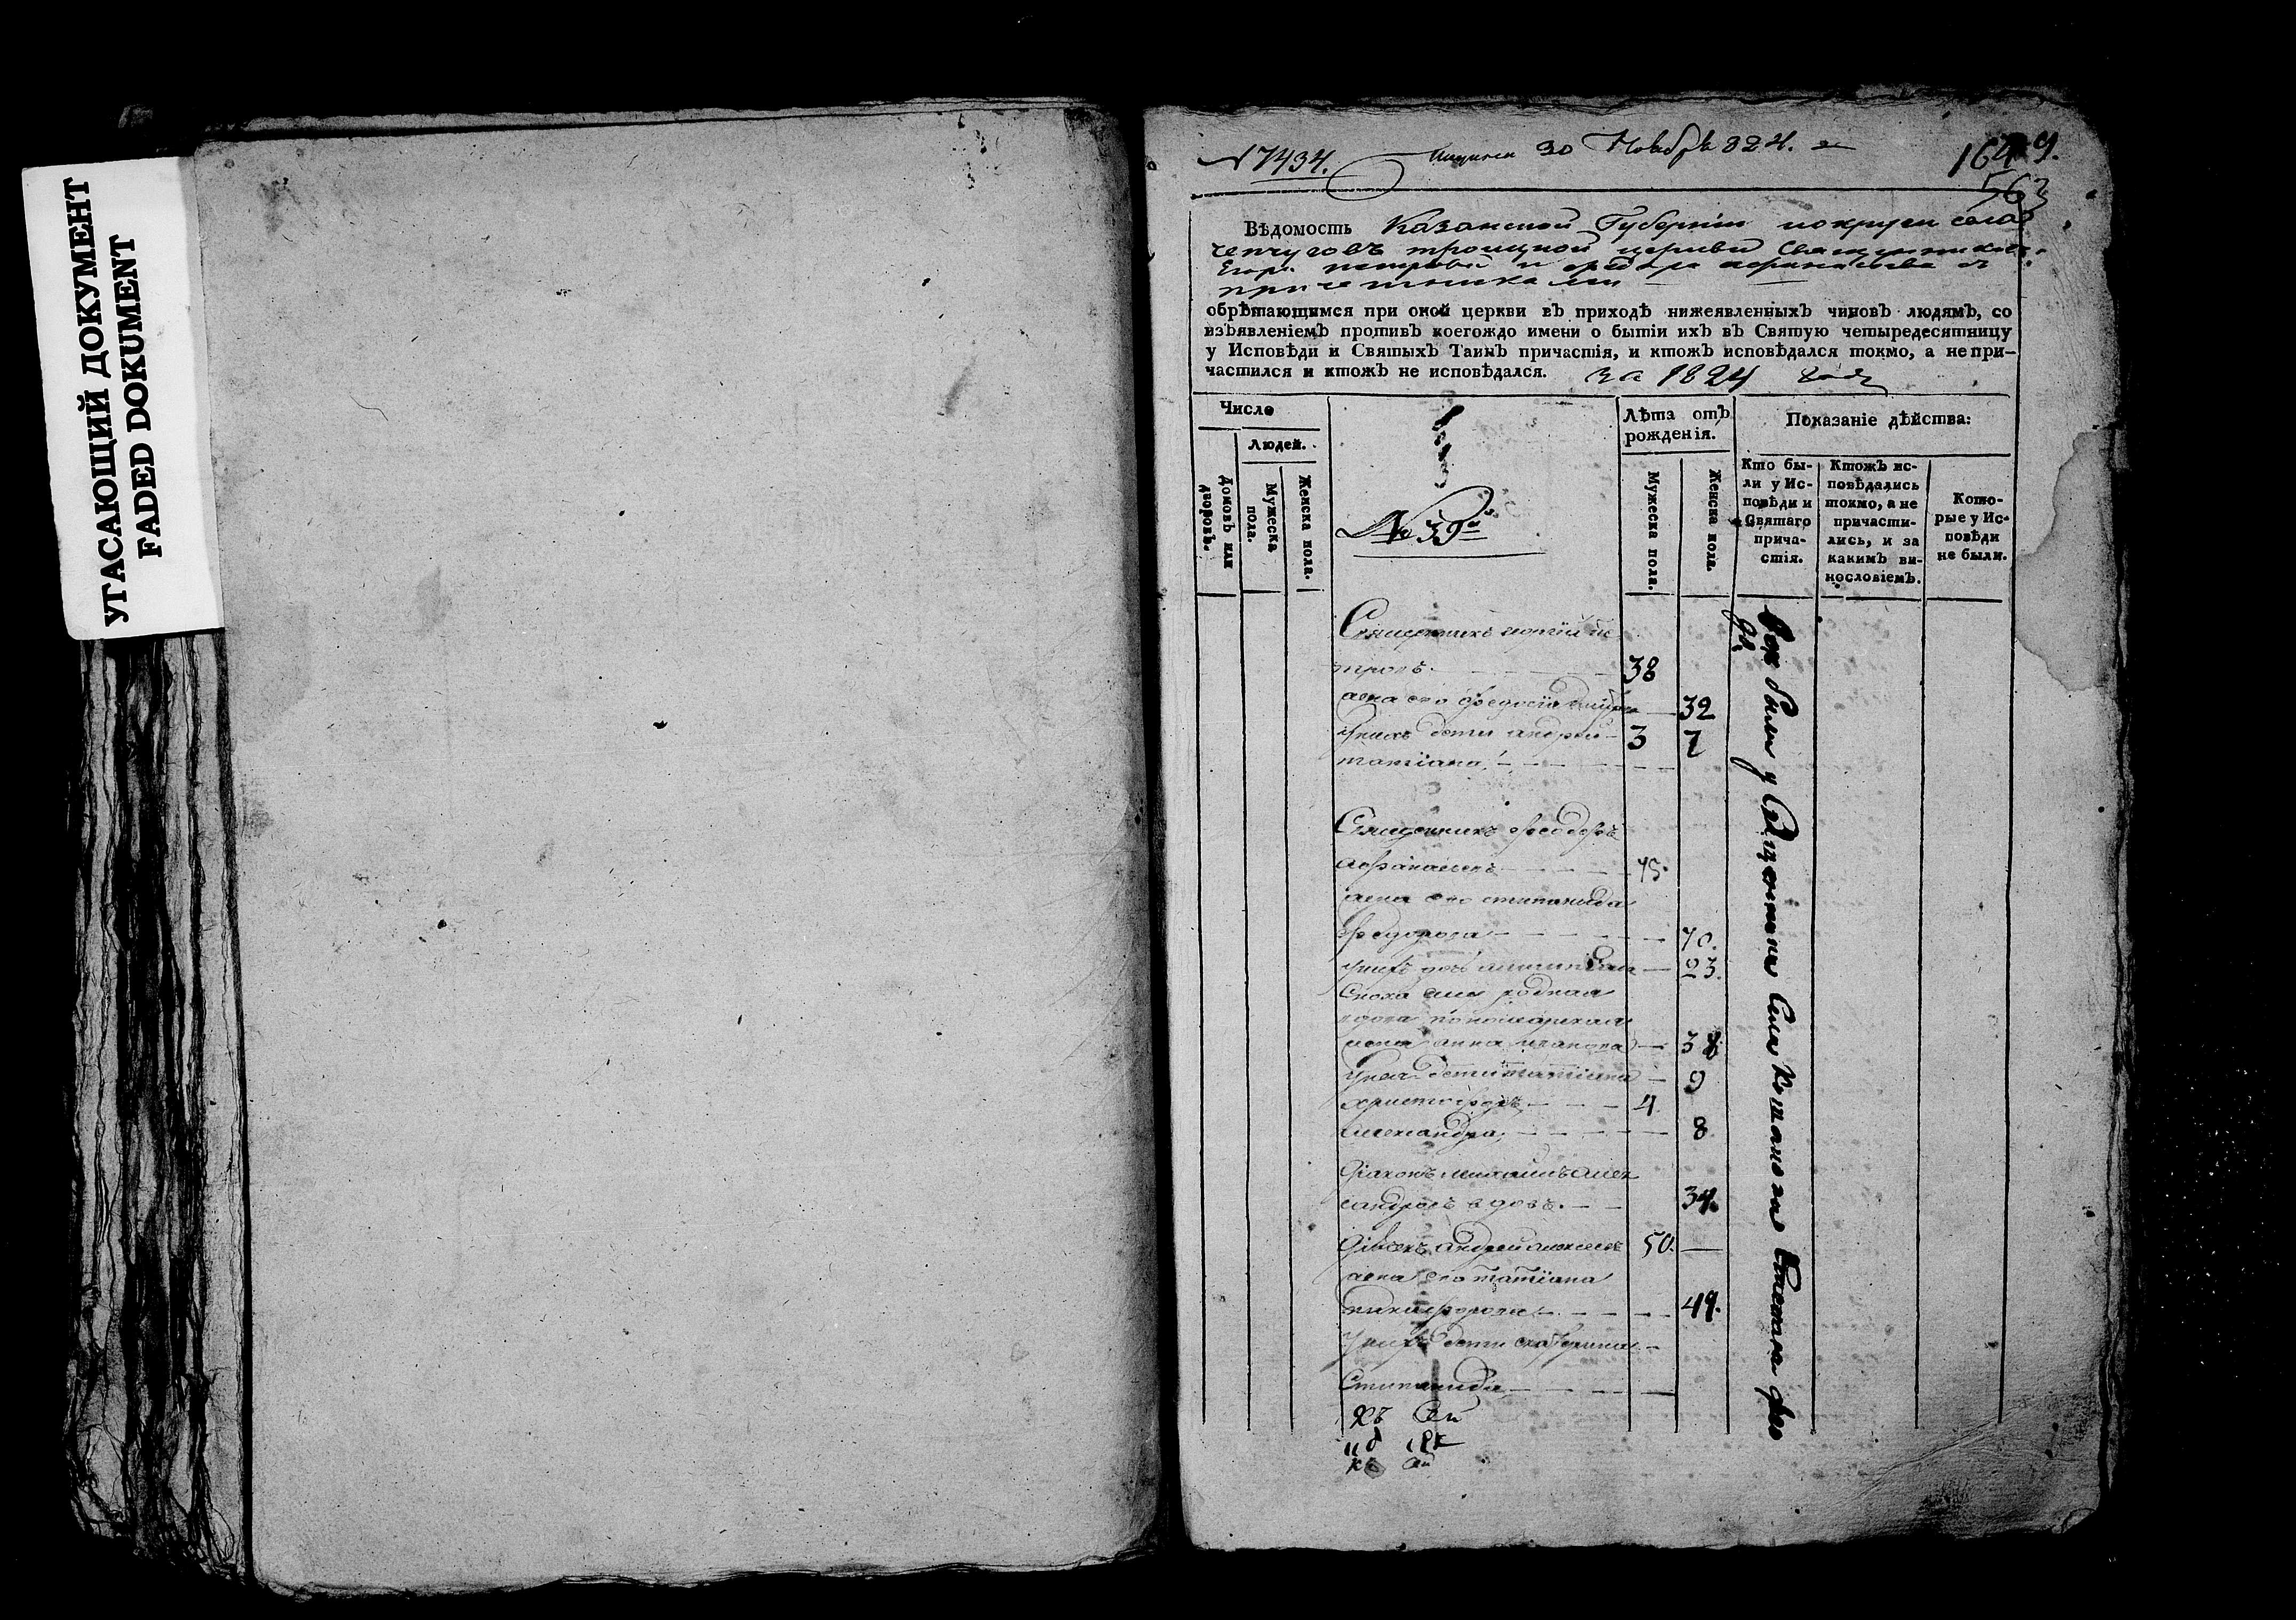 УГАСАЮЩИЙ ДОКУМЕНТ
FADED DOKUMENT
№ 7434. 30 Ноября 824.
563
Вѣдомость Казанской Губерніи села
Чепчуговъ троицкой церкви
Егора петрова и федора
причетниками
обрѣтающимся при оной церкви въ приходѣ нижеявленныхъ чиновъ людямъ, со
изъявленіемъ противъ коегождо имени о бытіи ихъ въ Святую четыредесятницу
у Исповѣди и Святыхъ Таинъ причастія, и ктожъ исповѣдался токмо, а не при-
частился и ктожъ не исповѣдался. за 1824 годъ
Число
Людей.
Домовъ или дворовъ.
Мужеска пола.
Женска пола.
№ 39й
Лѣта отъ
рожденія.
Мужеска пола.
Женска пола.
Показаніе дѣйства:
Кто бы-
ли у Ис-
повѣди и
Святаго
прича-
стія.
Ктожъ ис-
повѣдались
токмо, а не
причасти-
лись, и за
какимъ ви-
нословіемъ.
Кото-
рые у Ис-
повѣди
не были.
Священникъ георгий пе
тровъ 38
жена его федосїа 32
У нихъ дети андрей 3 7
татїана
Священникъ феодоръ
афанасьевъ 75.
жена его степанида
федорова 70.
23.
Сноха родная
вдова пономарская
жена анна иванова 38
У нея дети татїана 9
христофоръ 4
александра 8
Дїаконъ михаилъ алек
сандровъ вдовъ. 34.
Дьячекъ андрей алексеевъ 50.
жена его татїана
никифорова 49.
У нихъ дети екатерина
Степанида
были у Священника Села